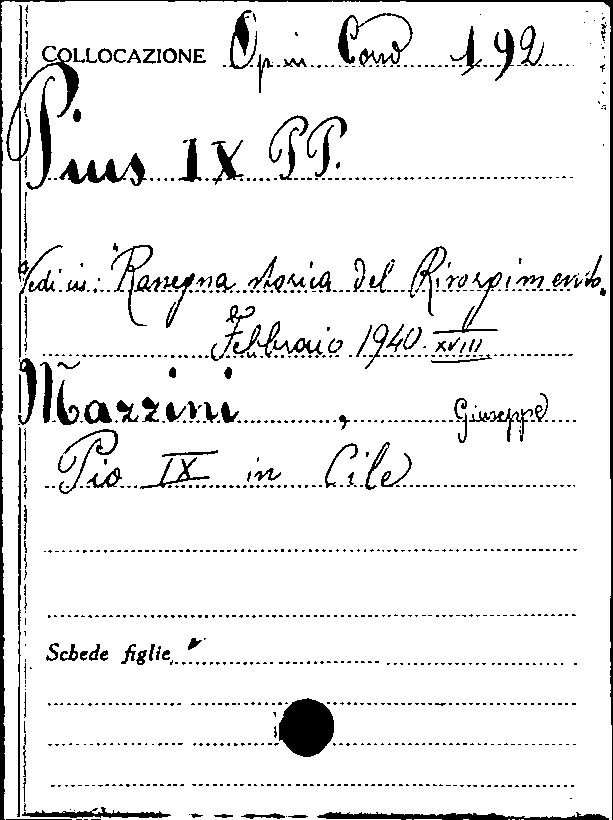 COLLOCAZIONE Op in Cond 192
Pius IX PP.
Vedi in: "Rassegna storica del Risorgimento.
Febbraio 1940 XVIII
Mazzini , Giuseppe
Pio IX in Cile
Schede figlie